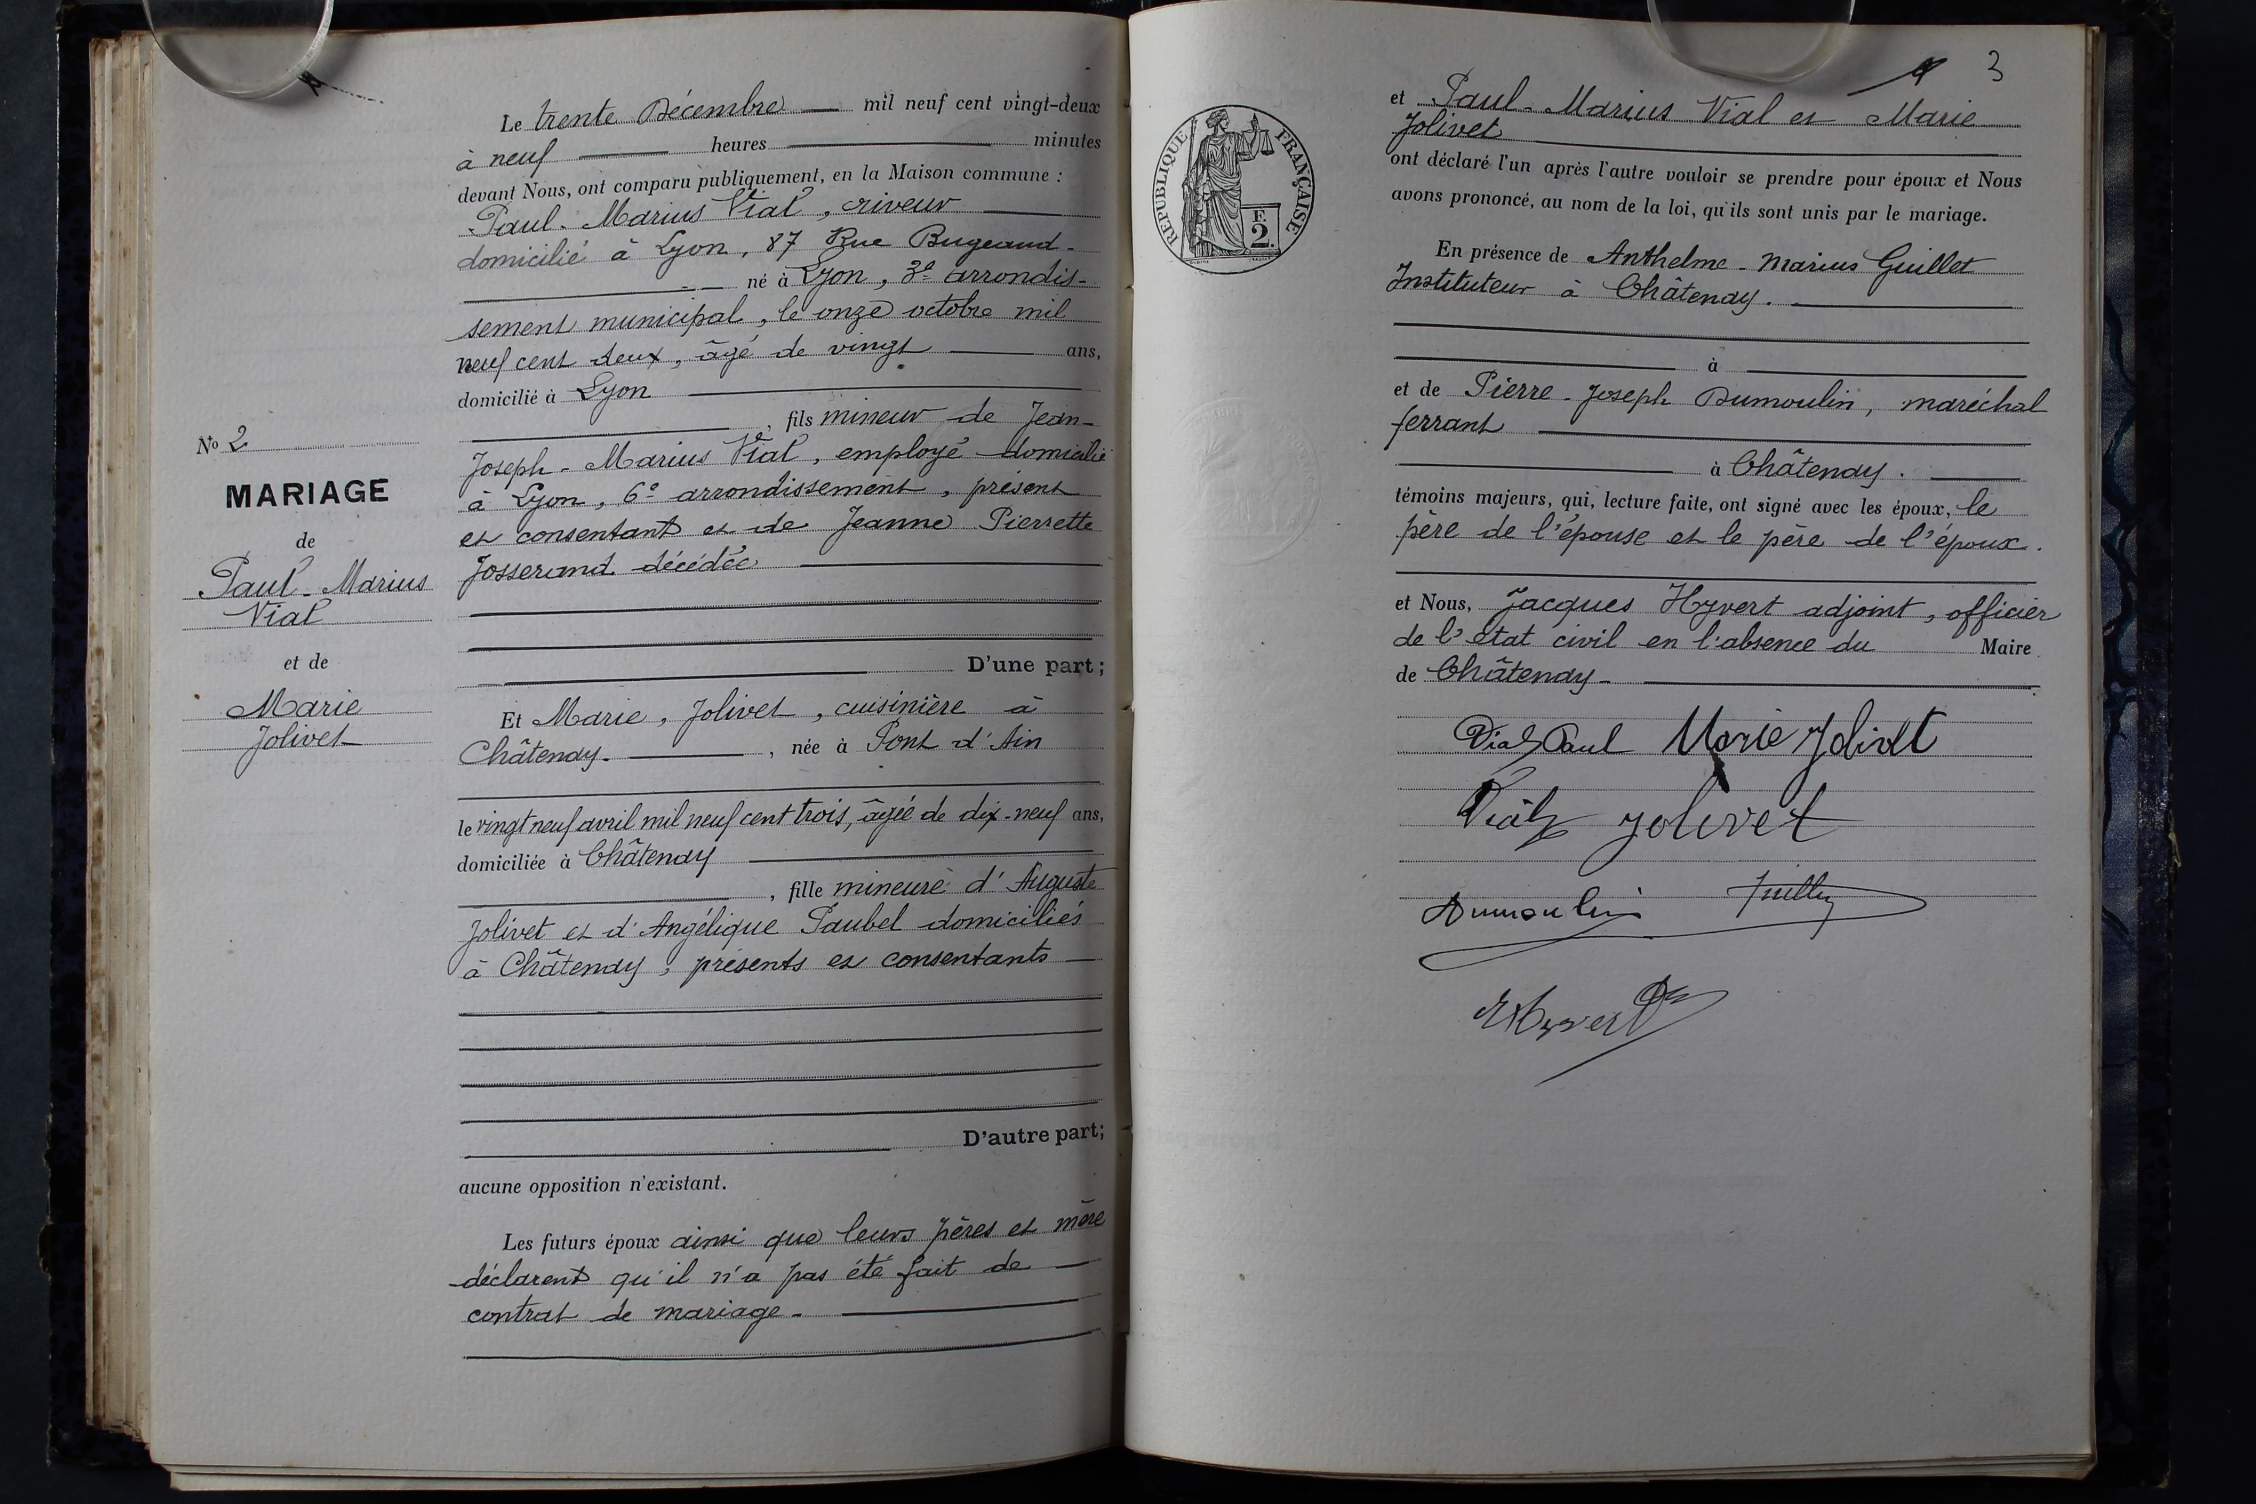 Le trente Décembre mil neuf cent vingt-deux
à neuf heures minutes
devant Nous, ont comparu publiquement, en la Maison commune :
Paul-Marius Vial, riveur
domicilié à Lyon, 87 Rue Bugeaud-
né à Lyon, 3e arrondis-
sement municipal, le onze octobre mil
neuf cent deux, âgé de vingt ans,
domicilié à Lyon
, fils mineur de Jean-
Joseph-Marius Vial, employé domicilié
à Lyon, 6e arrondissement, présent
et consentant et de Jeanne Pierrette
Josserand décédée
D'une part ;
Et Marie, Jolivet, cuisinière à
Châtenay. , née à Pont d'Ain
le vingt neuf avril mil neuf cent trois, âgée de dix-neuf ans,
domiciliée à Châtenay
, fille mineure d'Auguste
Jolivet et d'Angélique Paubel domiciliés
à Châtenay, présents et consentants
D'autre part ;
aucune opposition n'existant.
Les futurs époux ainsi que leurs pères et mère
déclarent qu'il n'a pas été fait de
contrat de mariage-
No 2
MARIAGE
de
Paul-Marius
Vial
et de
Marie
Jolivet
3
RÉPUBLIQUE FRANÇAISE
F.
2.
et Paul-Marius Vial et Marie
Jolivet
ont déclaré l'un après l'autre vouloir se prendre pour époux et Nous
avons prononcé, au nom de la loi, qu'ils sont unis par le mariage.
En présence de Anthelme-Marius Guillet
Instituteur à Châtenay.
à
et de Pierre-Joseph Dumoulin, maréchal
ferrant
à Châtenay.
témoins majeurs, qui, lecture faite, ont signé avec les époux, le
père de l'épouse et le père de l'époux.
et Nous, Jacques Hyvert adjoint, officier
de l'état civil en l'absence du Maire
de Châtenay-
Vial Paul Marie Jolivet
Vial Jolivet
Dumoulin Guillet
Hyvert